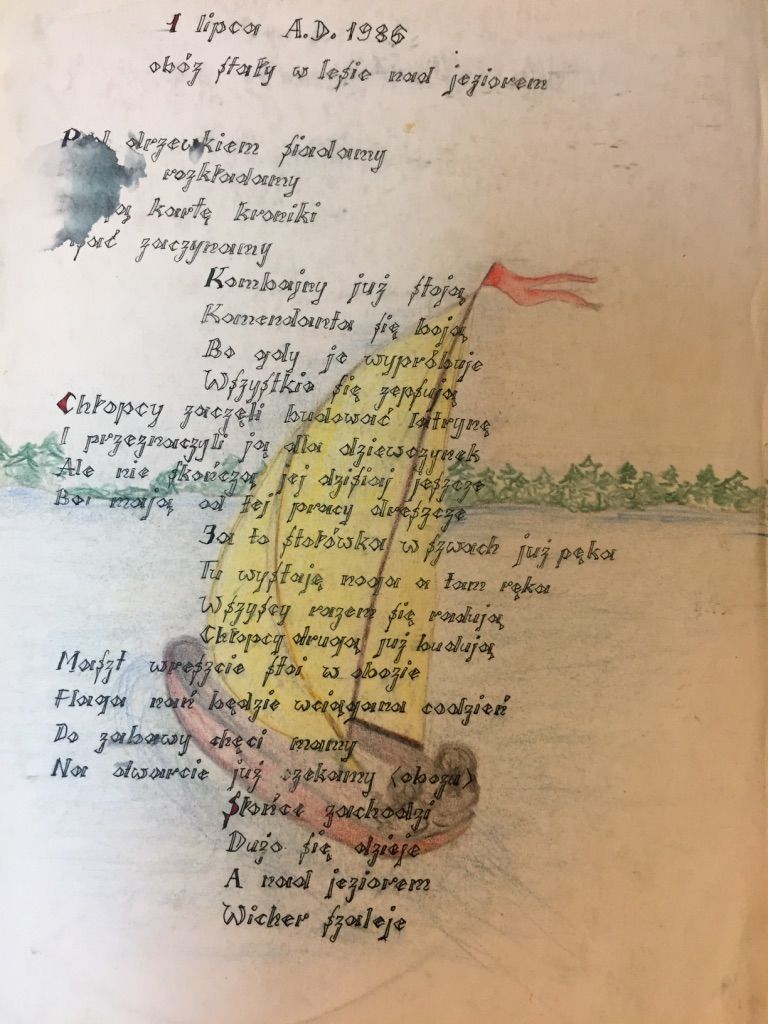 1 lipca A.D. 1986
obóz stały w lesie nad jeziorem
Pod drzewkiem siadamy
rozkładamy
kartę kroniki
zaczynamy
Kombajny już stoją
Komendanta się boją
Bo gdy je wypróbuje
Wszystkie się zepsują
Chłopcy zaczęli budować latrynę
I przeznaczyli ją dla dziewczynek
Ale nie skończą jej dzisiaj jeszcze
Bo mają od tej pracy dreszcze
Za to stołówka w szwach już pęka
Tu wystaję noga a tam ręka
Wszyscy razem się radują
Chłopcy drugą już budują
Maszt wreszcie stoi w obozie
Flaga nań będzie wciągana codzień
Do zabawy chęci mamy
Na otwarcie już czekamy (obozu)
Słońce zachodzi
Dużo się dzieje
A nad jeziorem
Wicher szaleje